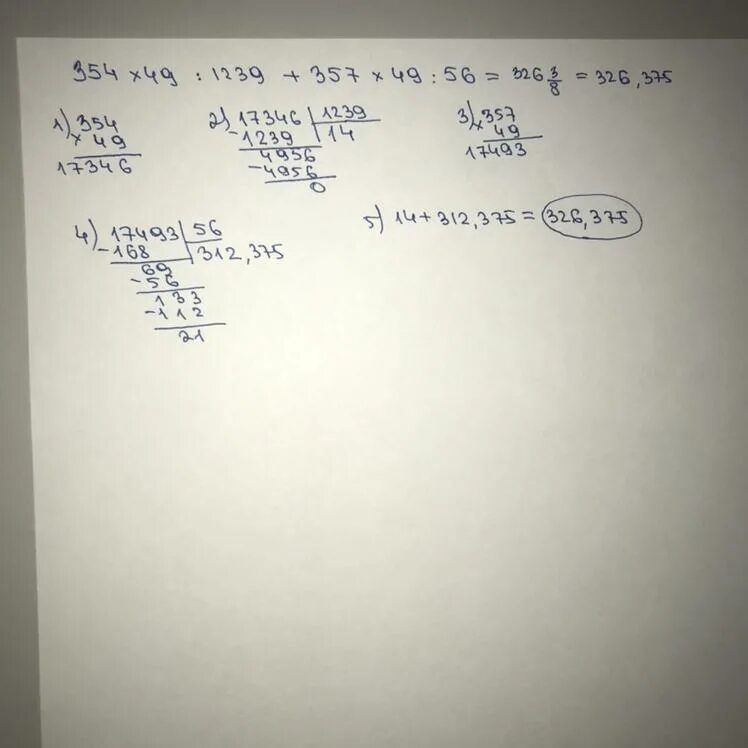 354 × 49 : 1239 + 357 × 49 : 56 = 326 3/8 = 326,375
1) 354
× 49
17346
2) 17346 | 1239
- 1239 | 14
4956
- 4956
0
3) 357
× 49
17493
4) 17493 | 56
- 168 | 312,375
69
- 56
133
- 112
21
5) 14 + 312,375 = 326,375